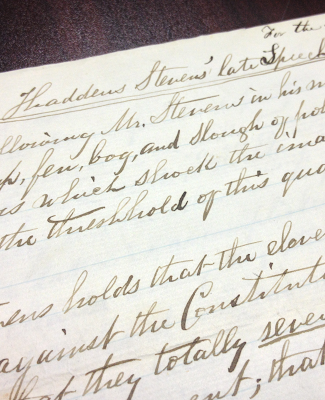 For the
Thaddens Stevens' late Speech
llowing Mr. Stevens in his m
p, fen, bog, and slough of pol
s which shock the ima
the threshhold of this qua
ens holds that the eleve
against the Constituti
hat they totally seve
ent; that